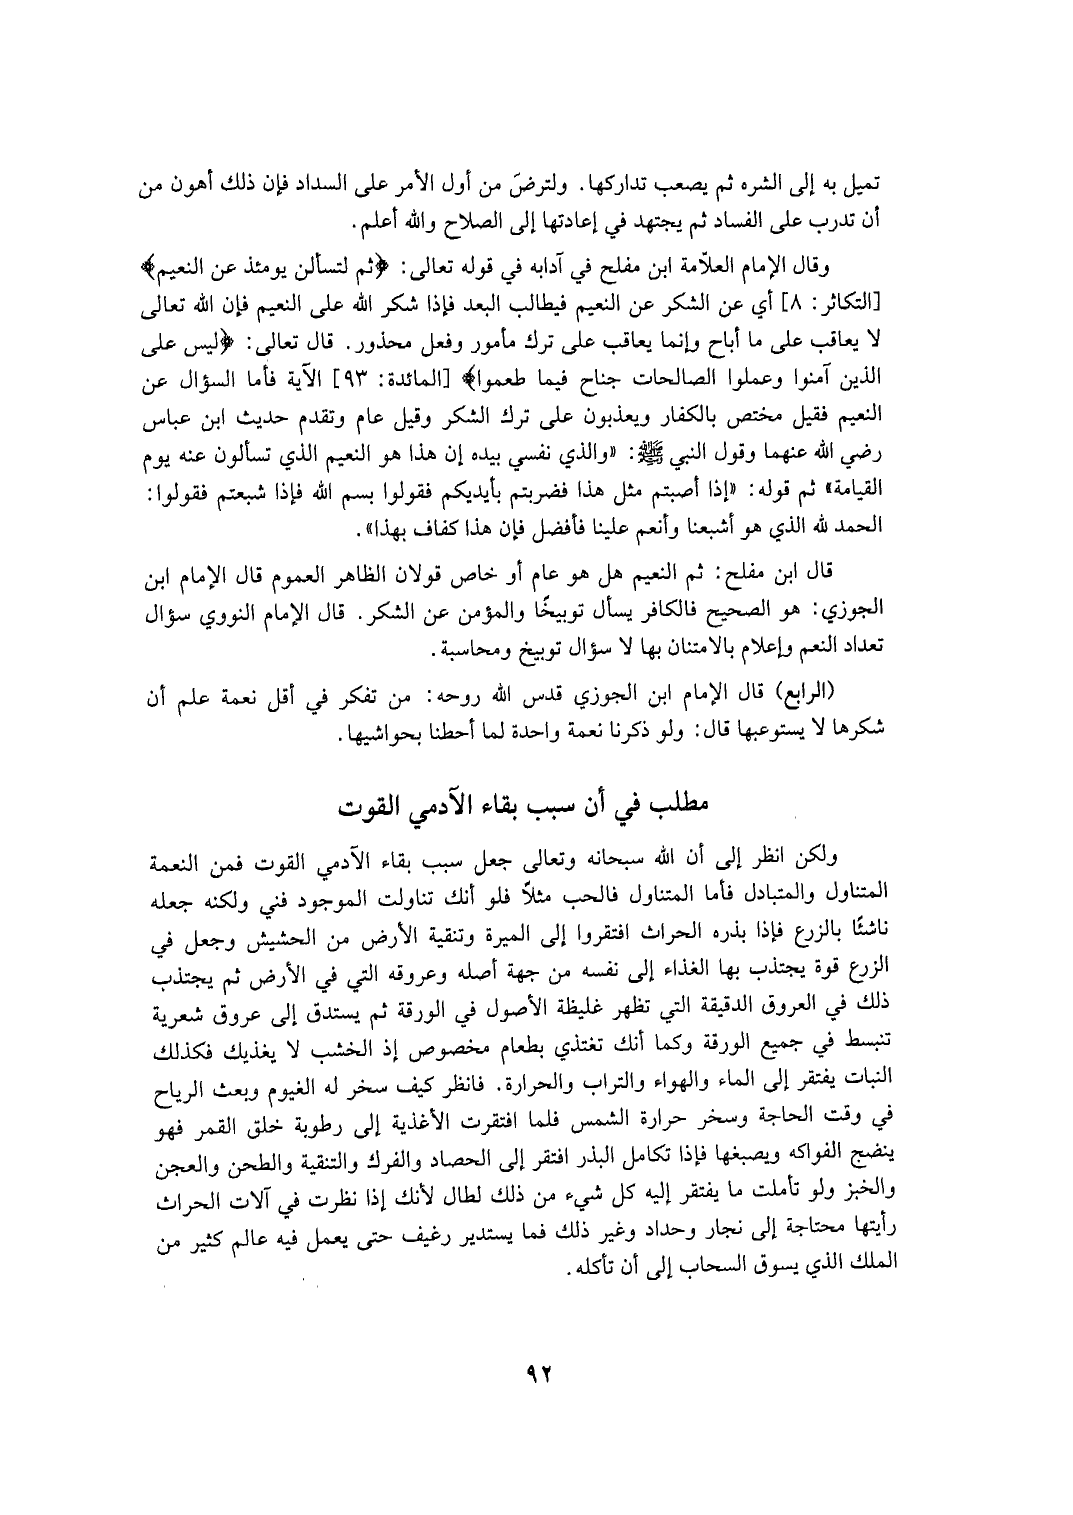 تميل به إلى الشره ثم يصعب تداركها. ولترضَ من أول الأمر على السداد فإن ذلك أهون من
أن تدرب على الفساد ثم يجتهد في إعادتها إلى الصلاح والله أعلم.
وقال الإمام العلّامة ابن مفلح في آدابه في قوله تعالى: ﴿ثم لتسألن يومئذ عن النعيم﴾
[التكاثر: ٨] أي عن الشكر عن النعيم فيطالب البعد فإذا شكر الله على النعيم فإن الله تعالى
لا يعاقب على ما أباح وإنما يعاقب على ترك مأمور وفعل محذور. قال تعالى: ﴿ليس على
الذين آمنوا وعملوا الصالحات جناح فيما طعموا﴾ [المائدة: ٩٣] الآية فأما السؤال عن
النعيم فقيل مختص بالكفار ويعذبون على ترك الشكر وقيل عام وتقدم حديث ابن عباس
رضي الله عنهما وقول النبي ﷺ: «والذي نفسي بيده إن هذا هو النعيم الذي تسألون عنه يوم
القيامة» ثم قوله: «إذا أصبتم مثل هذا فضربتم بأيديكم فقولوا بسم الله فإذا شبعتم فقولوا:
الحمد لله الذي هو أشبعنا وأنعم علينا فأفضل فإن هذا كفاف بهذا».
قال ابن مفلح: ثم النعيم هل هو عام أو خاص قولان الظاهر العموم قال الإمام ابن
الجوزي: هو الصحيح فالكافر يسأل توبيخًا والمؤمن عن الشكر. قال الإمام النووي سؤال
تعداد النعم وإعلام بالامتنان بها لا سؤال توبيخ ومحاسبة.
(الرابع) قال الإمام ابن الجوزي قدس الله روحه: من تفكر في أقل نعمة علم أن
شكرها لا يستوعبها قال: ولو ذكرنا نعمة واحدة لما أحطنا بحواشيها.
مطلب في أن سبب بقاء الآدمي القوت
ولكن انظر إلى أن الله سبحانه وتعالى جعل سبب بقاء الآدمي القوت فمن النعمة
المتناول والمتبادل فأما المتناول فالحب مثلًا فلو أنك تناولت الموجود فني ولكنه جعله
ناشئًا بالزرع فإذا بذره الحراث افتقروا إلى الميرة وتنقية الأرض من الحشيش وجعل في
الزرع قوة يجتذب بها الغذاء إلى نفسه من جهة أصله وعروقه التي في الأرض ثم يجتذب
ذلك في العروق الدقيقة التي تظهر غليظة الأصول في الورقة ثم يستدق إلى عروق شعرية
تنبسط في جميع الورقة وكما أنك تغتذي بطعام مخصوص إذ الخشب لا يغذيك فكذلك
النبات يفتقر إلى الماء والهواء والتراب والحرارة. فانظر كيف سخر له الغيوم وبعث الرياح
في وقت الحاجة وسخر حرارة الشمس فلما افتقرت الأغذية إلى رطوبة خلق القمر فهو
ينضج الفواكه ويصبغها فإذا تكامل البذر افتقر إلى الحصاد والفرك والتنقية والطحن والعجن
والخبز ولو تأملت ما يفتقر إليه كل شيء من ذلك لطال لأنك إذا نظرت في آلات الحراث
رأيتها محتاجة إلى نجار وحداد وغير ذلك فما يستدير رغيف حتى يعمل فيه عالم كثير من
الملك الذي يسوق السحاب إلى أن تأكله.
٩٢